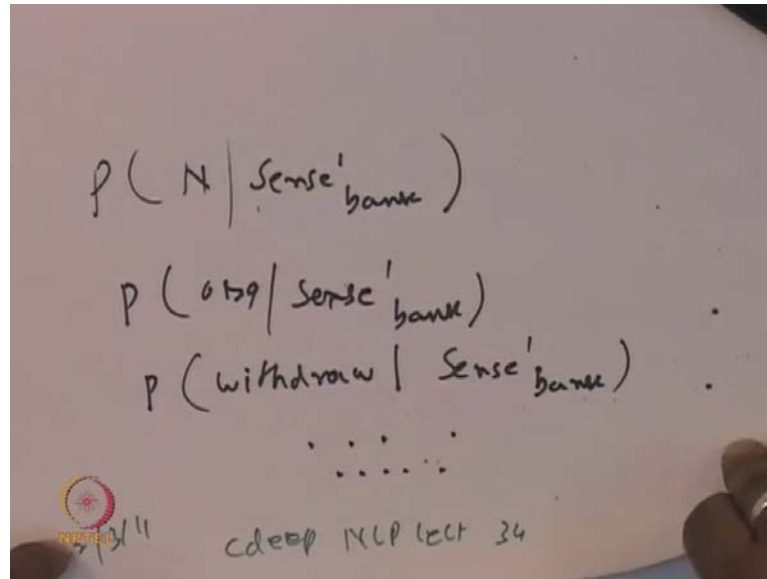 P( N | Sense' bank )
P( obj | Sense' bank )
P( withdraw | Sense' bank )
. . . .
. . . . . .
NPTEL
/3/11 cdeep NLP Lect 34